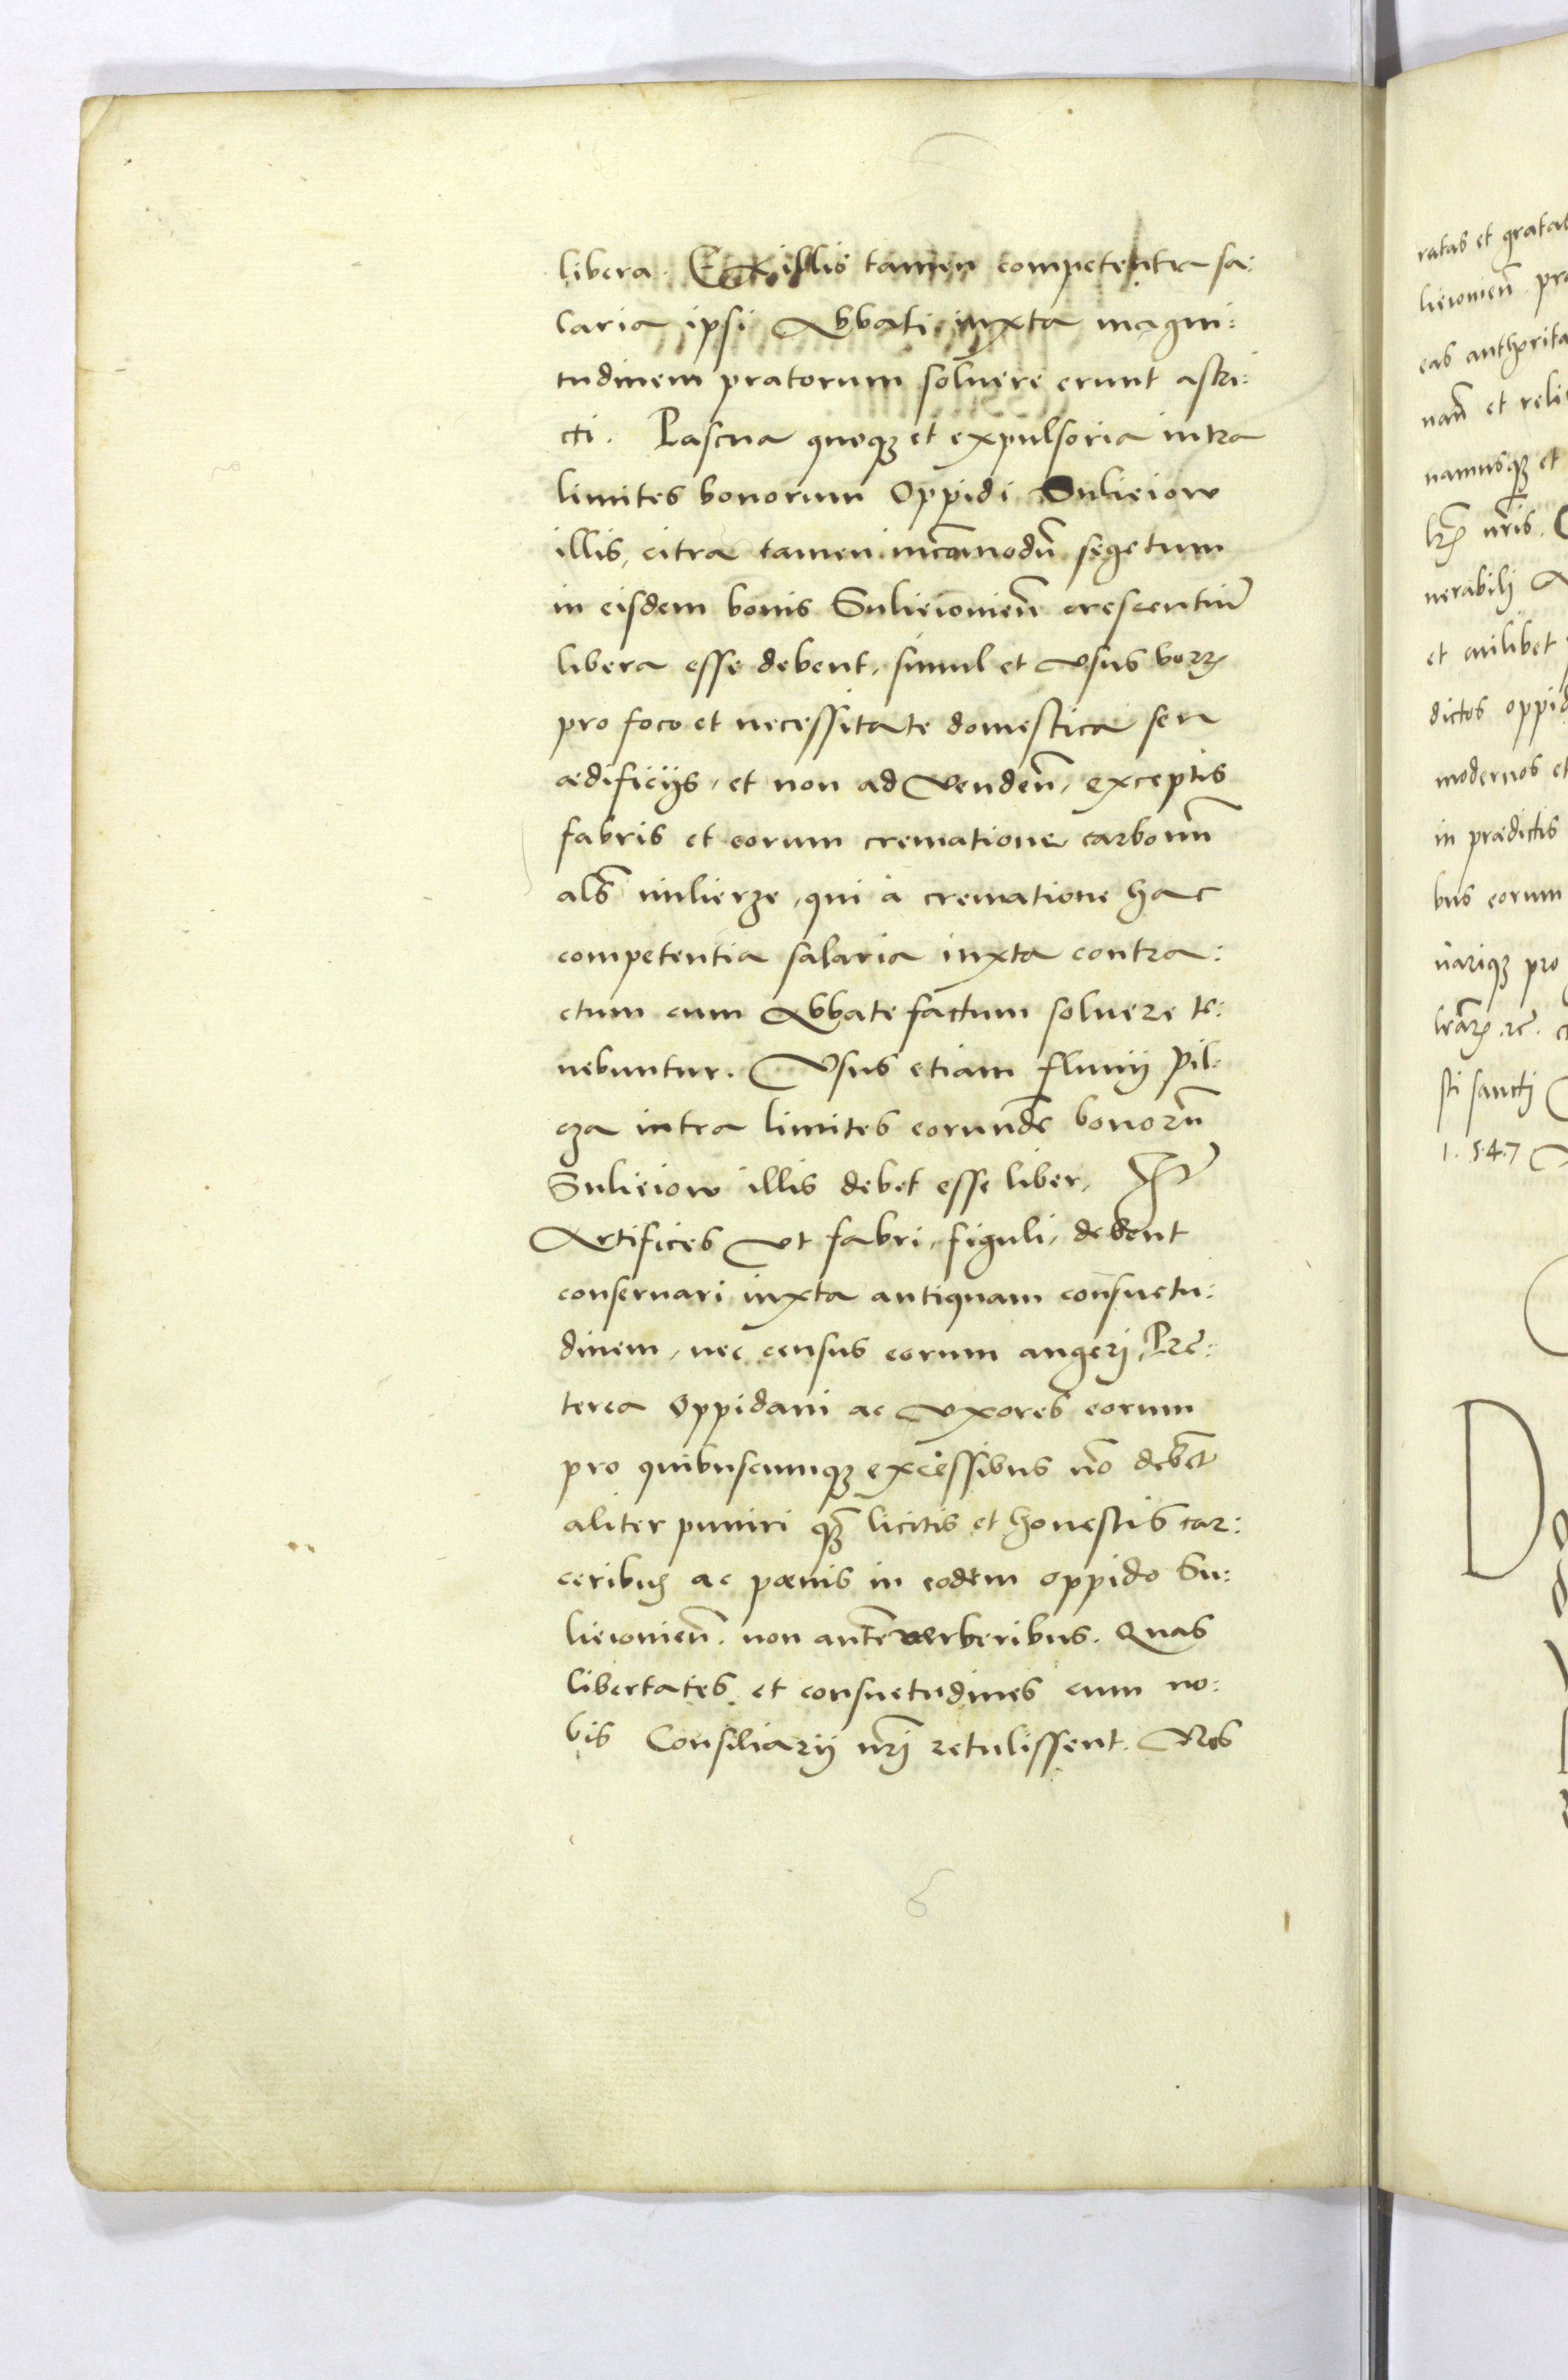 libera. Ex illis tamen competentia sa:
laria ipsi Abbati iuxta magni:
tudinem pratorum soluere erunt astri:
cti. Pascua quoqꝫ et expulsoria intra
limites bonorum Oppidi Sulieiow
illis, citra tamen incōmodū segetum
in eisdem bonis Sulieiouien̄ crescentiū
libera esse debent, simul et vsus borrꝭ
pro foco et necessitate domestica seu
ædificijs, et non ad venden̄, exceptis
fabris et eorum crematione carbonū
als̄ milierze, qui à crematione hac
competentia salaria iuxta contra:
ctum cum Abbate factum soluere te:
nebuntur. Vsus etiam fluuij Pil:
cza intra limites eorundē bonorū
Sulieiow illis debet esse liber,
Artifices vt fabri, figuli, debent
conseruari iuxta antiquam consuetu:
dinem, nec census eorum augeri, Præ:
terea Oppidani ac vxores eorum
pro quibuscunqꝫ excessibus nō debēt
aliter puniri qꝫ̄ licitis et honestis car:
ceribus ac pœnis in eodem oppido Su:
lieiouien̄. non autē verberibus. Quas
libertates et consuetudines cum no:
bis Consiliarij nrī retulissent. Nos
ratas et grata
lieiouien̄ pr
eas authorita
nan̄ et reli
namusqꝫ et
nrīs.
nerabilj A
et cuilibet
dictos oppid
modernos et
in prædictis
bus eorum
uariqꝫ pro
sti sanctj
1.5.4.7
D